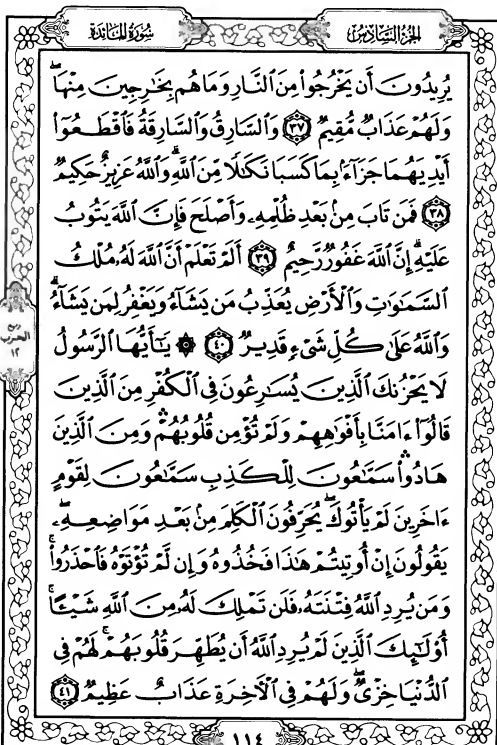 سُورَةُ المَائِدَة
الجُزْءُ السَّادِسُ
يُرِيدُونَ أَن يَخْرُجُوا۟ مِنَ ٱلنَّارِ وَمَا هُم بِخَـٰرِجِينَ مِنْهَا ۖ
وَلَهُمْ عَذَابٌ مُّقِيمٌ ٣٧ وَٱلسَّارِقُ وَٱلسَّارِقَةُ فَٱقْطَعُوٓا۟
أَيْدِيَهُمَا جَزَآءًۢ بِمَا كَسَبَا نَكَـٰلًا مِّنَ ٱللَّهِ ۗ وَٱللَّهُ عَزِيزٌ حَكِيمٌ
٣٨ فَمَن تَابَ مِنۢ بَعْدِ ظُلْمِهِۦ وَأَصْلَحَ فَإِنَّ ٱللَّهَ يَتُوبُ
عَلَيْهِ ۗ إِنَّ ٱللَّهَ غَفُورٌ رَّحِيمٌ ٣٩ أَلَمْ تَعْلَمْ أَنَّ ٱللَّهَ لَهُۥ مُلْكُ
ٱلسَّمَـٰوَٰتِ وَٱلْأَرْضِ يُعَذِّبُ مَن يَشَآءُ وَيَغْفِرُ لِمَن يَشَآءُ ۗ
وَٱللَّهُ عَلَىٰ كُلِّ شَىْءٍ قَدِيرٌ ٤٠ ۞ يَـٰٓأَيُّهَا ٱلرَّسُولُ
لَا يَحْزُنكَ ٱلَّذِينَ يُسَـٰرِعُونَ فِى ٱلْكُفْرِ مِنَ ٱلَّذِينَ
قَالُوٓا۟ ءَامَنَّا بِأَفْوَٰهِهِمْ وَلَمْ تُؤْمِن قُلُوبُهُمْ ۛ وَمِنَ ٱلَّذِينَ
هَادُوا۟ ۛ سَمَّـٰعُونَ لِلْكَذِبِ سَمَّـٰعُونَ لِقَوْمٍ
ءَاخَرِينَ لَمْ يَأْتُوكَ ۖ يُحَرِّفُونَ ٱلْكَلِمَ مِنۢ بَعْدِ مَوَاضِعِهِۦ ۖ
يَقُولُونَ إِنْ أُوتِيتُمْ هَـٰذَا فَخُذُوهُ وَإِن لَّمْ تُؤْتَوْهُ فَٱحْذَرُوا۟ ۚ
وَمَن يُرِدِ ٱللَّهُ فِتْنَتَهُۥ فَلَن تَمْلِكَ لَهُۥ مِنَ ٱللَّهِ شَيْـًٔا ۚ
أُو۟لَـٰٓئِكَ ٱلَّذِينَ لَمْ يُرِدِ ٱللَّهُ أَن يُطَهِّرَ قُلُوبَهُمْ ۚ لَهُمْ فِى
ٱلدُّنْيَا خِزْىٌ ۖ وَلَهُمْ فِى ٱلْـَٔاخِرَةِ عَذَابٌ عَظِيمٌ ٤١
ربع
الحزب
١٢
١١٤